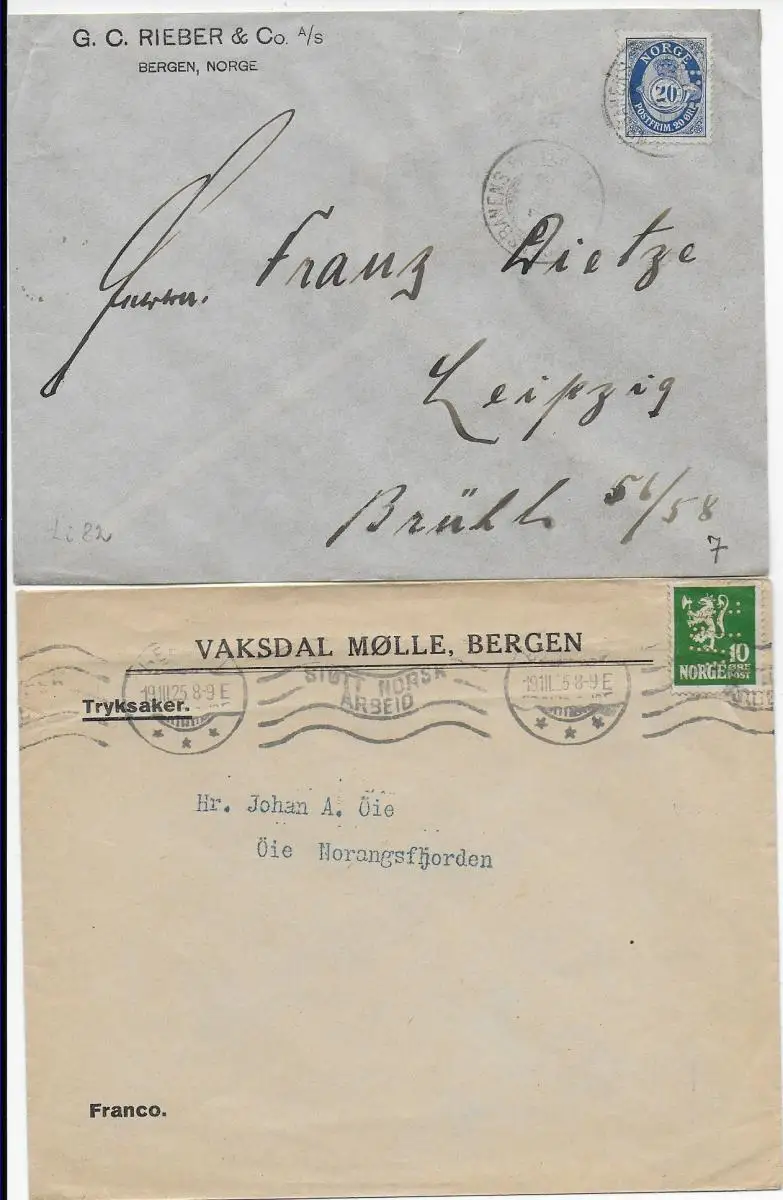 G. C. RIEBER & Co. A/S
BERGEN, NORGE
NORGE
20
POSTFRIM. 20 ØRE
Herrn. Franz Dietze
Leipzig
Brühl 56/58
Li 82
7
VAKSDAL MØLLE, BERGEN
10
ØRE
NORGE POST
19 III 25 8-9 E
STØTT NORSK
ARBEID
19 III 25 8-9 E
Tryksaker.
Hr. Johan A. Öie
Öie Norangsfjorden
Franco.